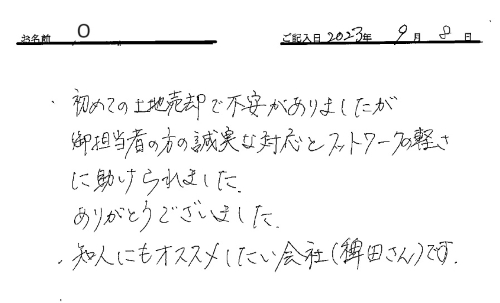 お名前 O ご記入日 2023年 9月 8日
・初めての土地売却で不安がありましたが
御担当者の方の誠実な対応とフットワークの軽さ
に助けられました.
ありがとうございました.
・知人にもオススメしたい会社(稗田さん)です.